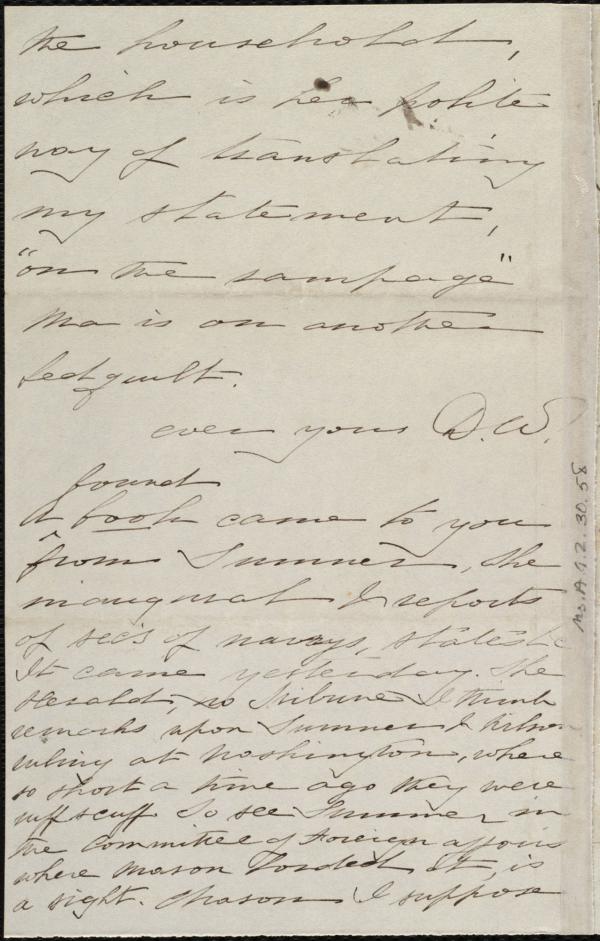 the household,
which is her polite
way of translating
my statement,
"on the rampage"
Ma is on another
bedquilt.
ever yours D.W.
found
A ^ book came to you
from Sumner, the
inaugural & reports
of sec's of navys, state &c
It came yesterday. The
Herald, no Tribune I think
remarks upon Sumner & Wilson
ruling at Washington, where
so short a time ago they were
riff scuff To see Sumner in
the committee of Foreign affairs
where Mason lorded it, is
a sight. Mason I suppose
Ms.A.9.2.30.58